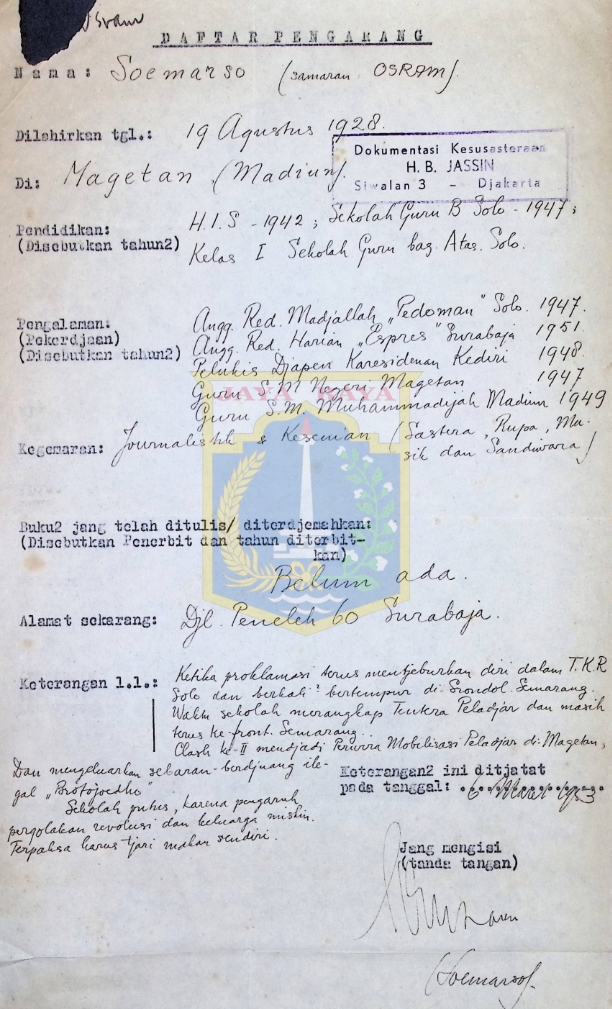 Osram
DAFTAR PENGARANG
Nama: Soemarso (samaran OSRAM).
Dilahirkan tgl.: 19 Agustus 1928.
Dokumentasi Kesusasteraan
H. B. JASSIN
Siwalan 3 – Djakarta
Di: Magetan (Madiun).
Pendidikan: H.I.S - 1942; Sekolah Guru B Solo - 1947;
(Disebutkan tahun2) Kelas I Sekolah Guru bag. Atas. Solo.
Pengalaman: Angg. Red. Madjallah „Pedoman" Solo. 1947.
(Pekerdjaan) Angg. Red. Harian „Espres" Surabaja 1951.
(Disebutkan tahun2) Pelukis Djapen Karesidenan Kediri 1948.
Guru S.M. Negeri Magetan 1947
Guru S.M. Muhammadijah Madiun 1949
JAYA RAYA
Kegemaran: Journalistik & Kesenian (Sastera, Rupa, Mu-
sik dan Sandiwara)
Buku2 jang telah ditulis/ diterdjemahkan:
(Disebutkan Penerbit dan tahun diterbit-
kan)
Belum ada.
Alamat sekarang: Djl. Peneleh 60 Surabaja.
Keterangan l.l.: Ketika proklamasi terus mentjeburkan diri dalam T.K.R
Solo dan berkali² bertempur di Srondol Semarang.
Waktu sekolah merangkap Tentera Peladjar dan masih
terus ke front Semarang.
Clash ke-II mendjadi Perwira Mobilisasi Peladjar di Magetan,
Dan mengeluarkan sebaran berdjuang ile-
gal „Brotojoedho"
Sekolah putus, karena pengaruh
pergolakan revolusi dan keluarga miskin.
Terpaksa harus tjari makan sendiri.
Keterangan2 ini ditjatat
pada tanggal: 6 Maret 1953
Jang mengisi
(tanda tangan)
(Soemarso).